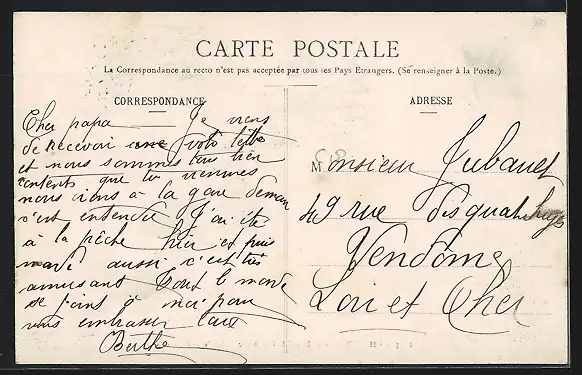 CARTE POSTALE
La Correspondance au recto n'est pas acceptée par tous les Pays Etrangers. (Se renseigner à la Poste.)
CORRESPONDANCE
Cher papa Je viens
de recevoir votre lettre
et nous sommes tous bien
contents que tu viennes
nous irons à la gare demain
c'est entendu J'ai été
à la pêche hier et puis
maré aussi c'est très
amusant Tout le monde
se joins à moi pour
vous embrasser tous
Berthe
ADRESSE
Monsieur Jubault
49 rue des quatre
Vendôme
Loir et Cher